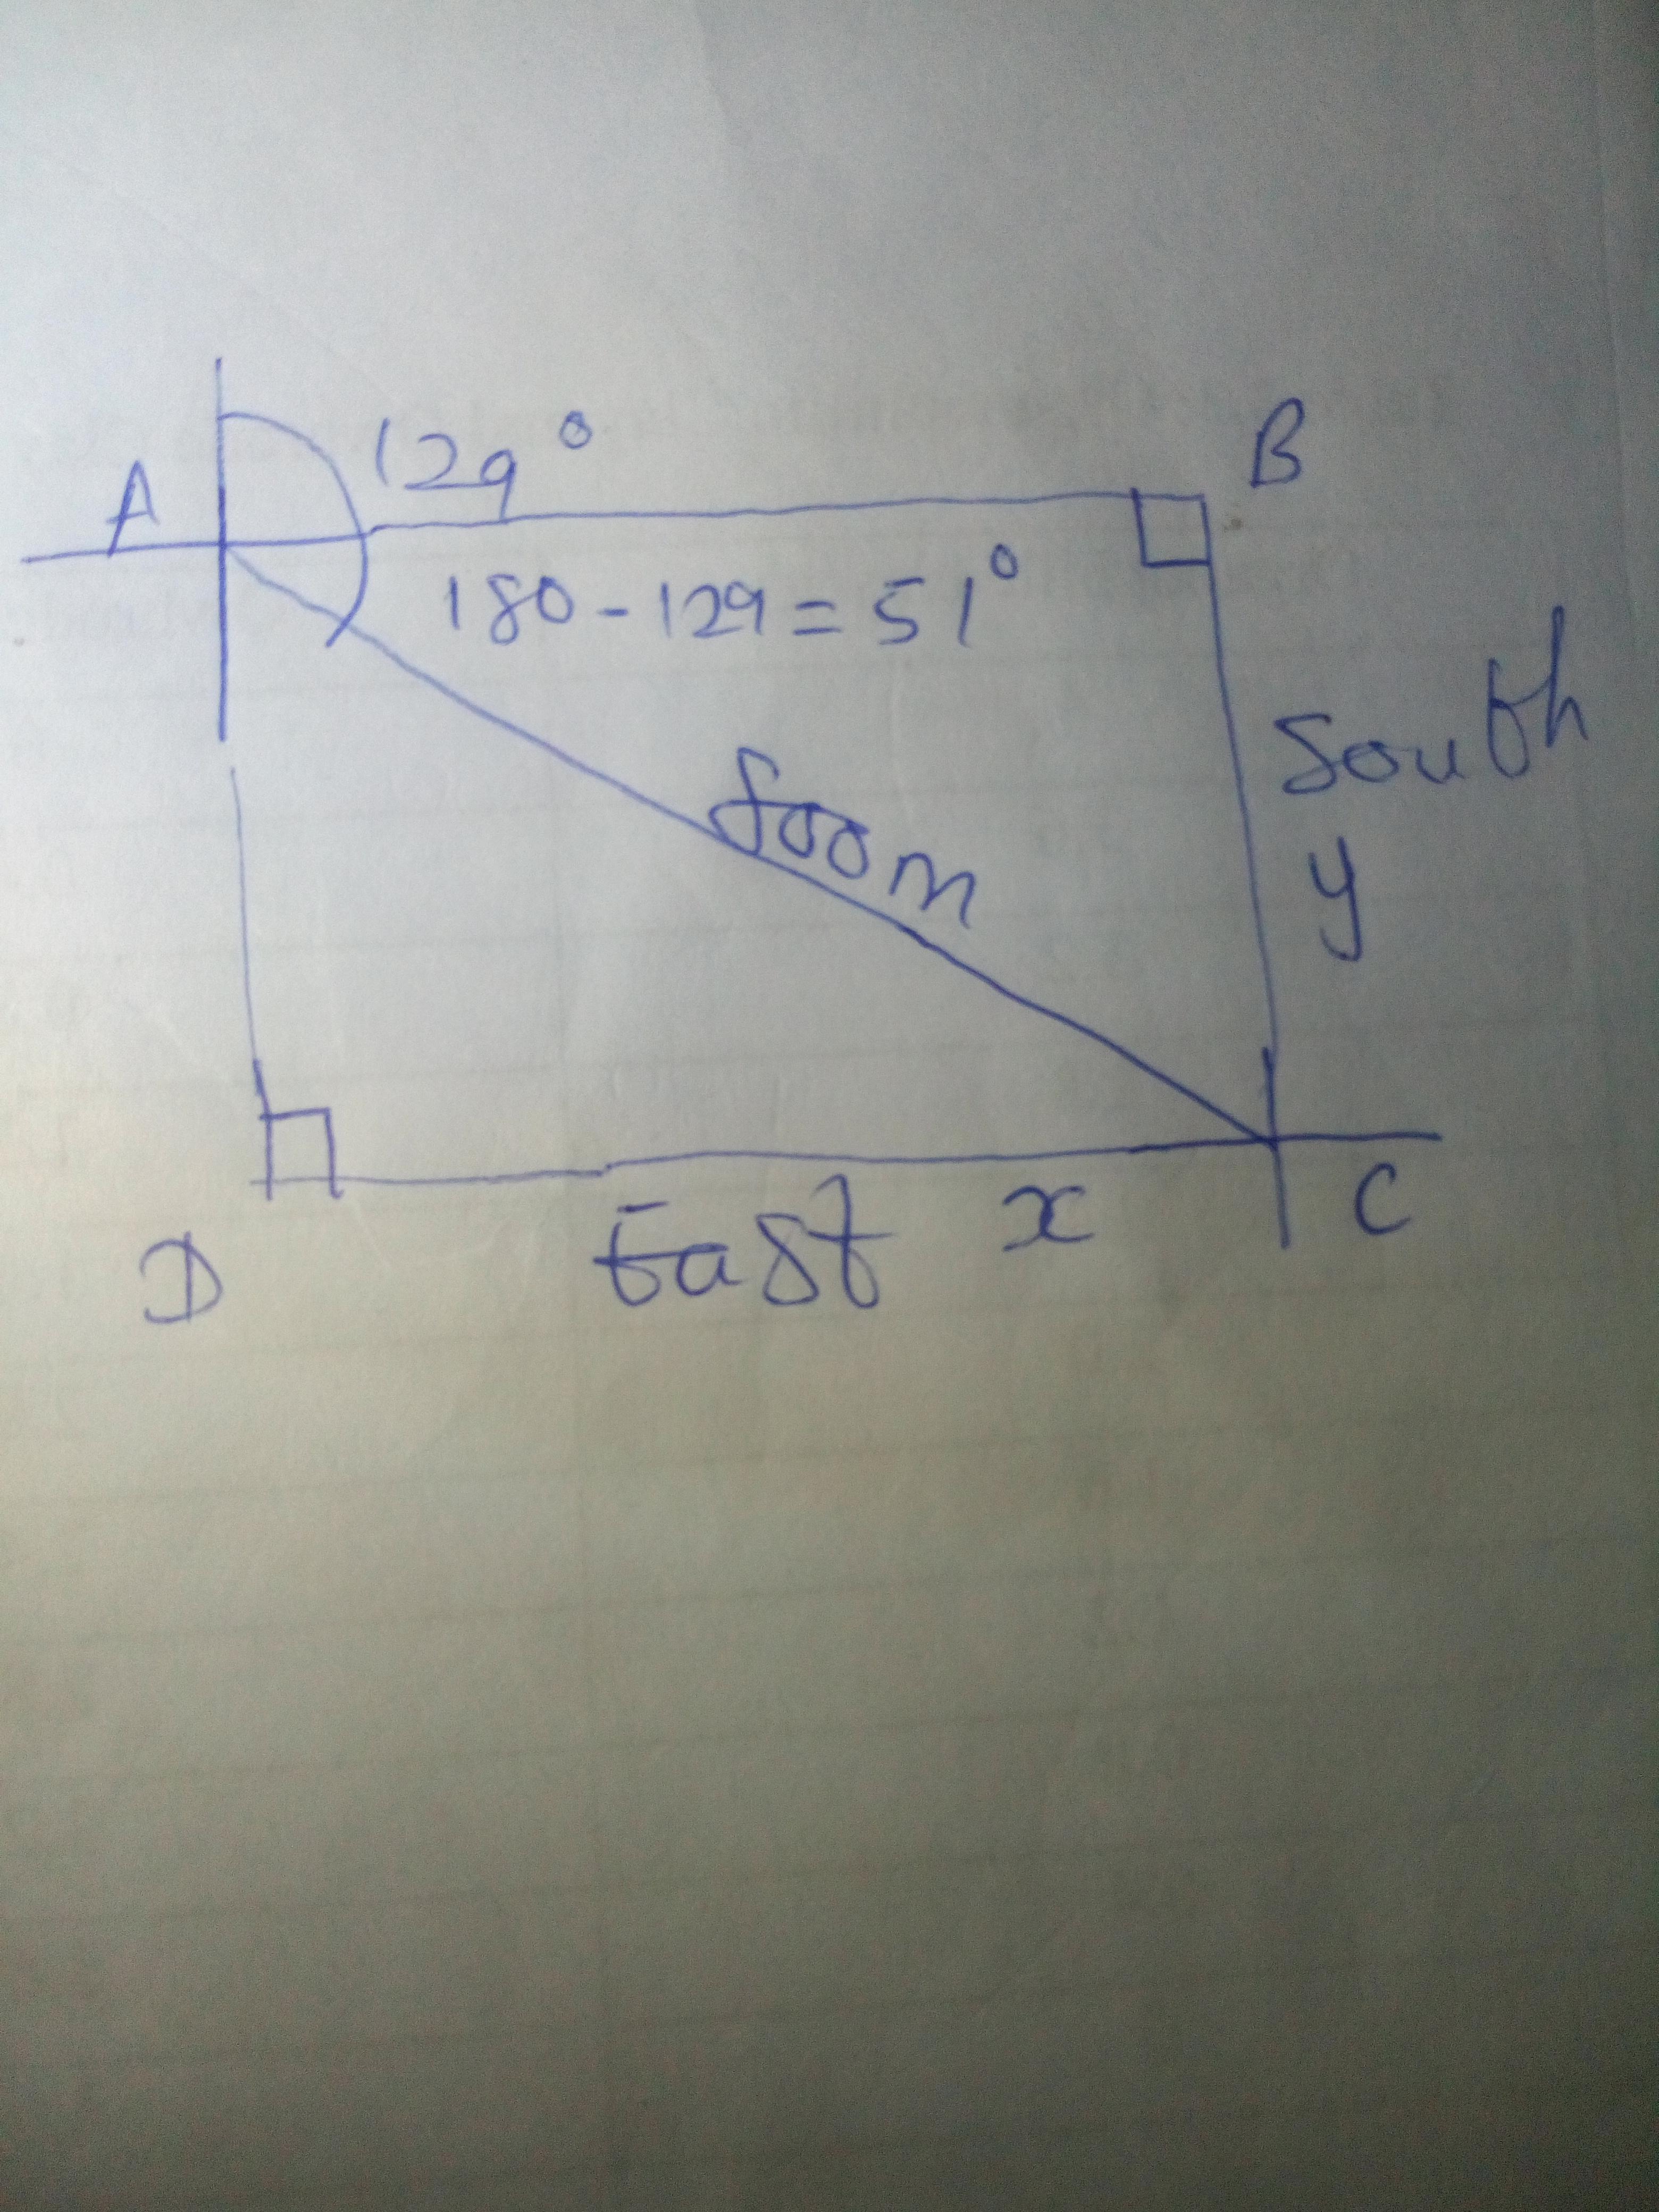 129°
A
B
180-129=51°
800m
South
y
East x
C
D